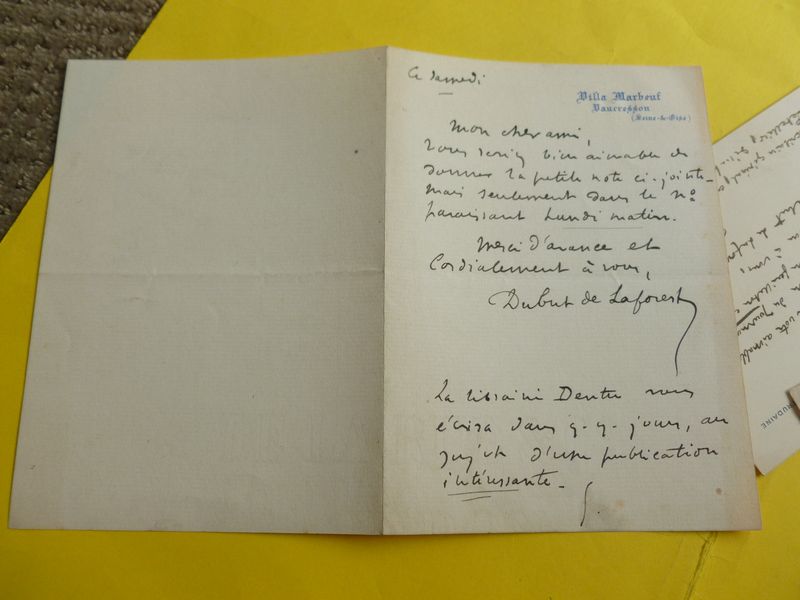 Ce samedi
Villa Marbeuf
Vaucresson
(Seine-&-Oise)
Mon cher ami,
Vous seriez bien aimable de
donner la petite note ci-jointe -
mais seulement dans le No
paraissant Lundi matin.
Merci d'avance et
Cordialement à vous,
Dubut de Laforest
La librairie Dentu vous
écrira dans q.q. jours, au
sujet d'une publication
intéressante -
AUDAINE